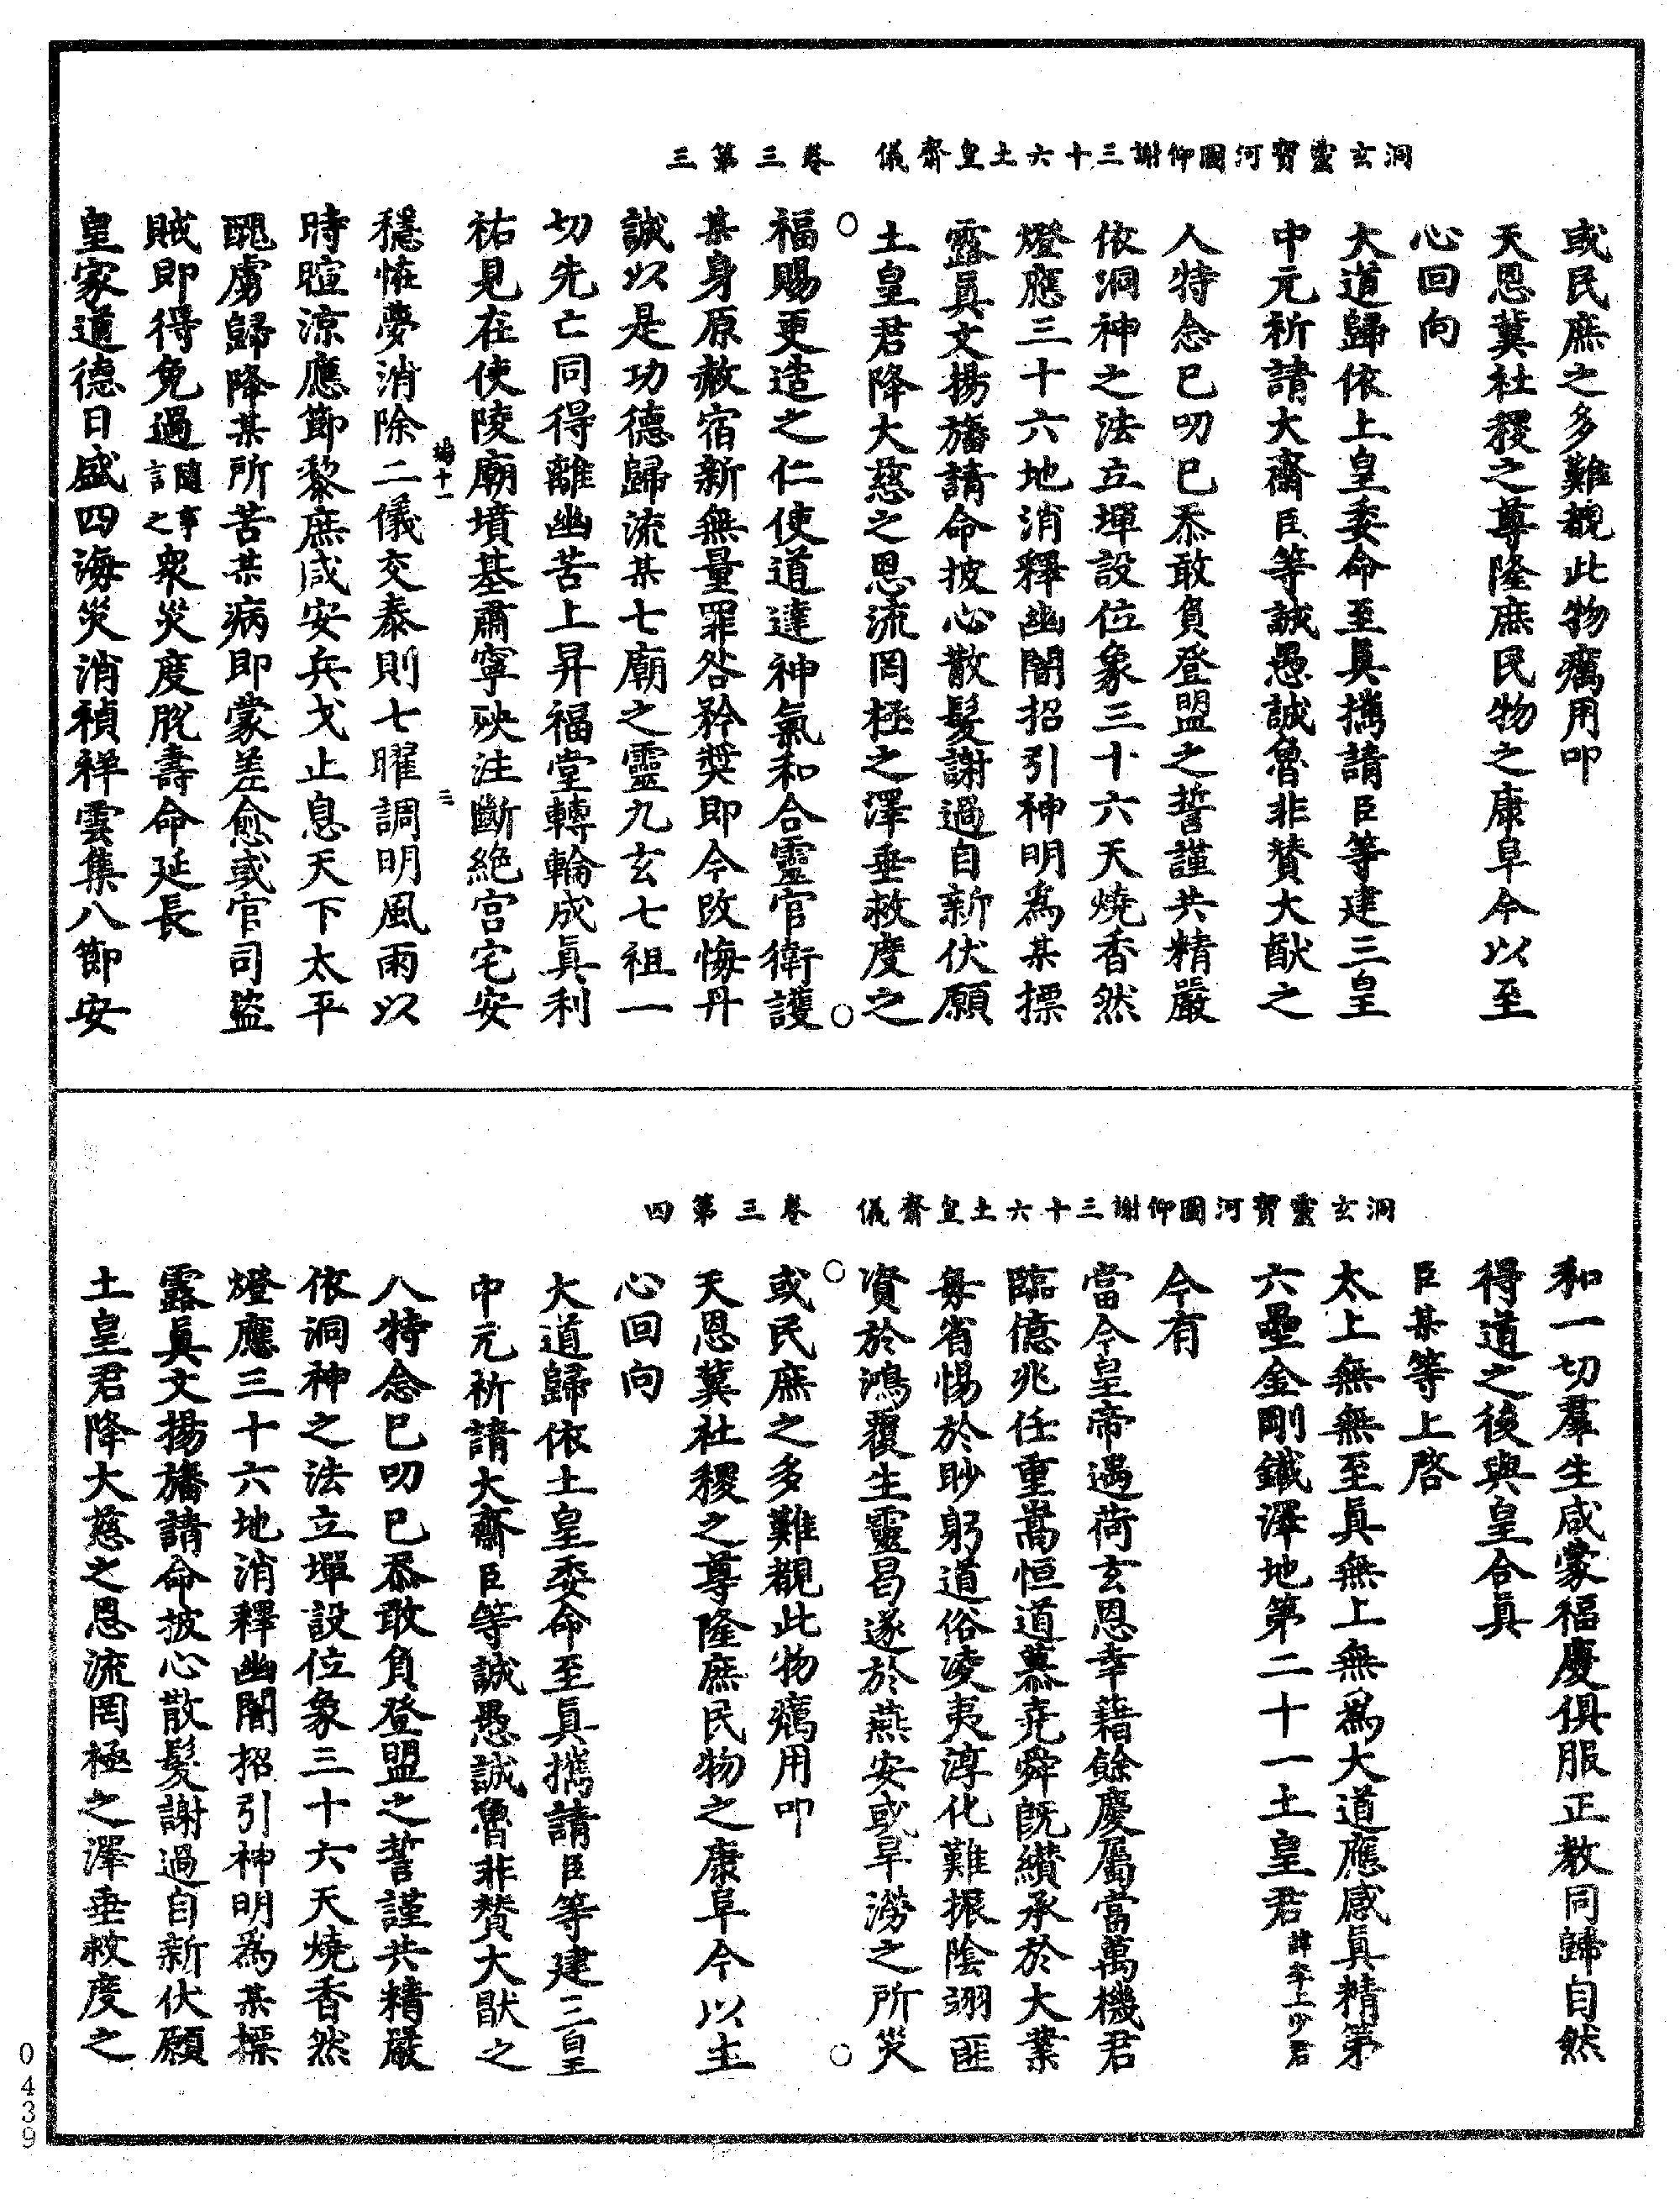 洞玄靈寶河圖仰謝三十六土皇齋儀　卷三第三
或民庶之多難覩此物癘用叩
天恩冀社稷之尊隆庶民物之康阜今以至
心回向
大道歸依上皇委命至真攜請臣等建三皇
中元祈請大齋臣等誠愚誠魯非贊大猷之
人特念已叨已忝敢負登盟之誓謹共精嚴
依洞神之法立墠設位象三十六天燒香然
燈應三十六地消釋幽闇招引神明為某摽
露真文揚旛請命披心散髮謝過自新伏願
土皇君降大慈之恩流罔極之澤垂救度之
福賜更造之仁使道達神氣和合靈官衛護
某身原赦宿新無量罪咎矜獎即今改悔丹
誠以是功德歸流某七廟之靈九玄七祖一
切先亡同得離幽苦上昇福堂轉輪成真利
祐見在使陵廟墳基肅寧殃注斷絕宮宅安
十一　三
穩恠夢消除二儀交泰則七曜調明風雨以
時暄涼應節黎庶咸安兵戈止息天下太平
醜虜歸降某所苦某病即蒙差愈或官司盜
賊即得免過隨事言之眾災度脫壽命延長
皇家道德日盛四海災消禎祥雲集八節安
洞玄靈寶河圖仰謝三十六土皇齋儀　卷三第四
和一切羣生咸蒙福慶俱服正教同歸自然
得道之後與皇合真
臣某等上啓
太上無無至真無上無為大道應感真精第
六壘金剛鐵澤地第二十一土皇君諱李上少君
今有
當今皇帝遇荷玄恩幸藉餘慶屬當萬機君
臨億兆任重嵩恒道慕堯舜既纘承於大業
每省惕於眇躬道俗凌夷淳化難振陰翊匪
資於鴻覆生靈曷遂於燕安或旱澇之所災
或民庶之多難覩此物癘用叩
天恩冀社稷之尊隆庶民物之康阜今以土
心回向
大道歸依土皇委命至真攜請臣等建三皇
中元祈請大齋臣等誠愚誠魯非贊大猷之
人特念已叨已忝敢負登盟之誓謹共精嚴
依洞神之法立墠設位象三十六天燒香然
燈應三十六地消釋幽闇招引神明為某摽
露真文揚旛請命披心散髮謝過自新伏願
土皇君降大慈之恩流罔極之澤垂救度之
0439